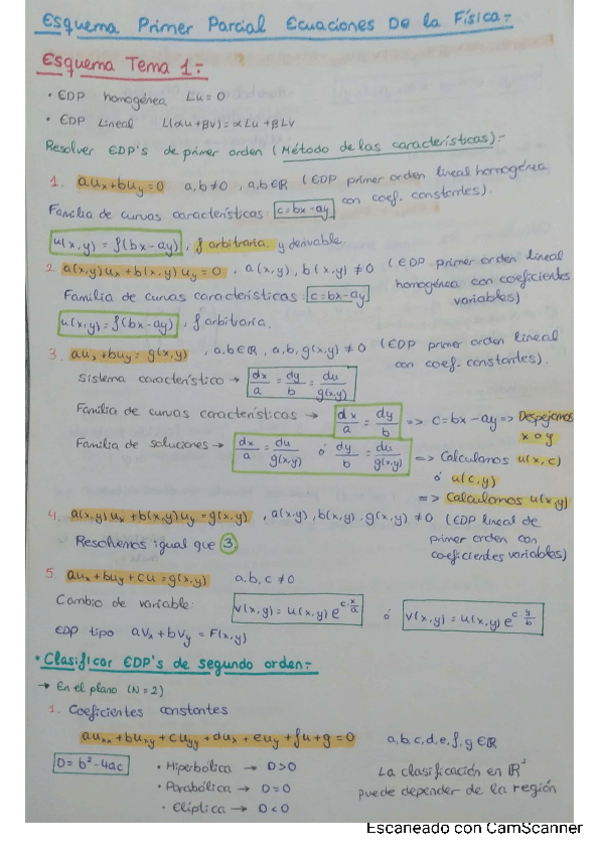 Esquema Primer Parcial Ecuaciones De la Física:-
Esquema Tema 1:-
• EDP homogénea Lu = 0
• EDP Lineal L(αu+βv) = αLu + βLv
Resolver EDP's de primer orden (Método de las características):-
1. aux + buy = 0 a,b≠0 , a,b∈R (EDP primer orden lineal homogénea
con coef. constantes).
Familia de curvas características: c=bx-ay
u(x,y) = f(bx-ay) , f arbitraria y derivable.
2. a(x,y)ux + b(x,y)uy = 0 , a(x,y), b(x,y) ≠ 0 (EDP primer orden lineal
homogénea con coeficientes
variables)
Familia de curvas características: c=bx-ay
u(x,y) = f(bx-ay) , f arbitraria.
3. aux + buy = g(x,y) , a,b∈R, a,b,g(x,y) ≠ 0 (EDP primer orden lineal
con coef. constantes).
Sistema característico → dx/a = dy/b = du/g(x,y)
Familia de curvas características → dx/a = dy/b => c=bx-ay => Despejamos
x o y
Familia de soluciones → dx/a = du/g(x,y) ó dy/b = du/g(x,y) => Calculamos u(x,c)
ó u(c,y)
=> Calculamos u(x,y)
4. a(x,y)ux + b(x,y)uy = g(x,y) , a(x,y), b(x,y), g(x,y) ≠ 0 (EDP lineal de
primer orden con
coeficientes variables)
Resolvemos igual que 3.
5. aux + buy + cu = g(x,y) a,b,c ≠ 0
Cambio de variable: v(x,y) = u(x,y) e^(c·x/a) ó v(x,y) = u(x,y) e^(c·y/b)
EDP tipo avx + bvy = F(x,y)
• Clasificar EDP's de segundo orden:-
→ En el plano (N=2)
1. Coeficientes constantes
auxx + buxy + cuyy + dux + euy + fu + g = 0 a,b,c,d,e,f,g ∈R
D = b²-4ac • Hiperbólica → D>0 La clasificación en R²
• Parabólica → D=0 puede depender de la región
• Elíptica → D<0
Escaneado con CamScanner